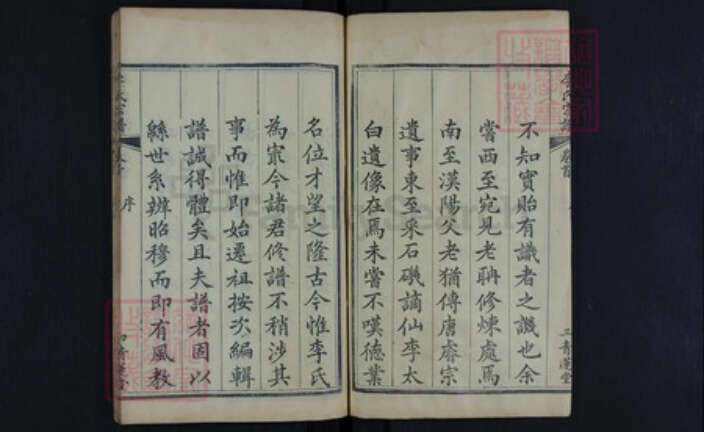 不知實貽有識者之譏也余
嘗西至宛見老聃修煉處焉
南至漢陽父老猶傳唐睿宗
遺事東至采石磯謫仙李太
白遺像在焉未嘗不嘆德業
名位才望之隆古今惟李氏
為冣今諸君修譜不稍涉其
事而惟即始遷祖按次編輯
譜誠得體矣且夫譜者固以
緜世系辨昭穆而即有風教
李氏宗譜
卷首
序
青蓮堂